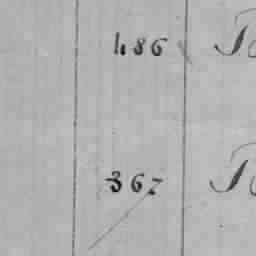 486
367